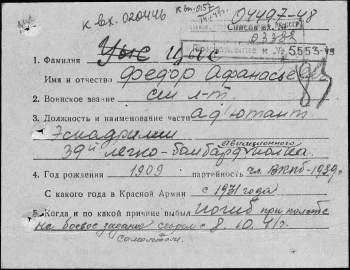 к вх. 020446
04497-48
Список вх.
03382
№ 5553-43
1. Фамилия Цыс Цыс
Имя и отчество Федор Афанасьевич
2. Воинское звание ст л-т
3. Должность и наименование части ад'ютант
Эскадрильи
39й легко-бомбард. авиационного полка.
4. Год рождения 1909 партийность чл. ВКПб-1939г.
С какого года в Красной Армии с 1931 года
5. Когда и по какой причине выбыл погиб при полете
на боевое задание сгорел с 8.10.41г.
самолетом.